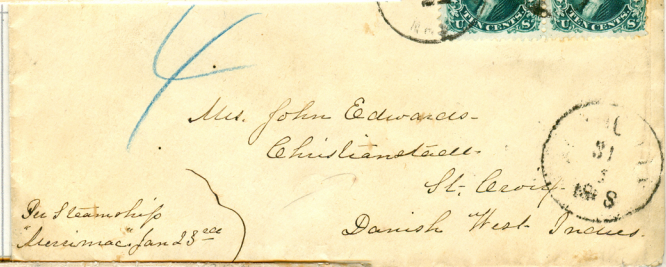 U TEN CENTS S U TEN CENTS S
4
Mrs. John Edwards-
Christianstadt-
St. Croix
Danish West Indies.
31
Per Steamship
"Merrimac" Jan 23rd